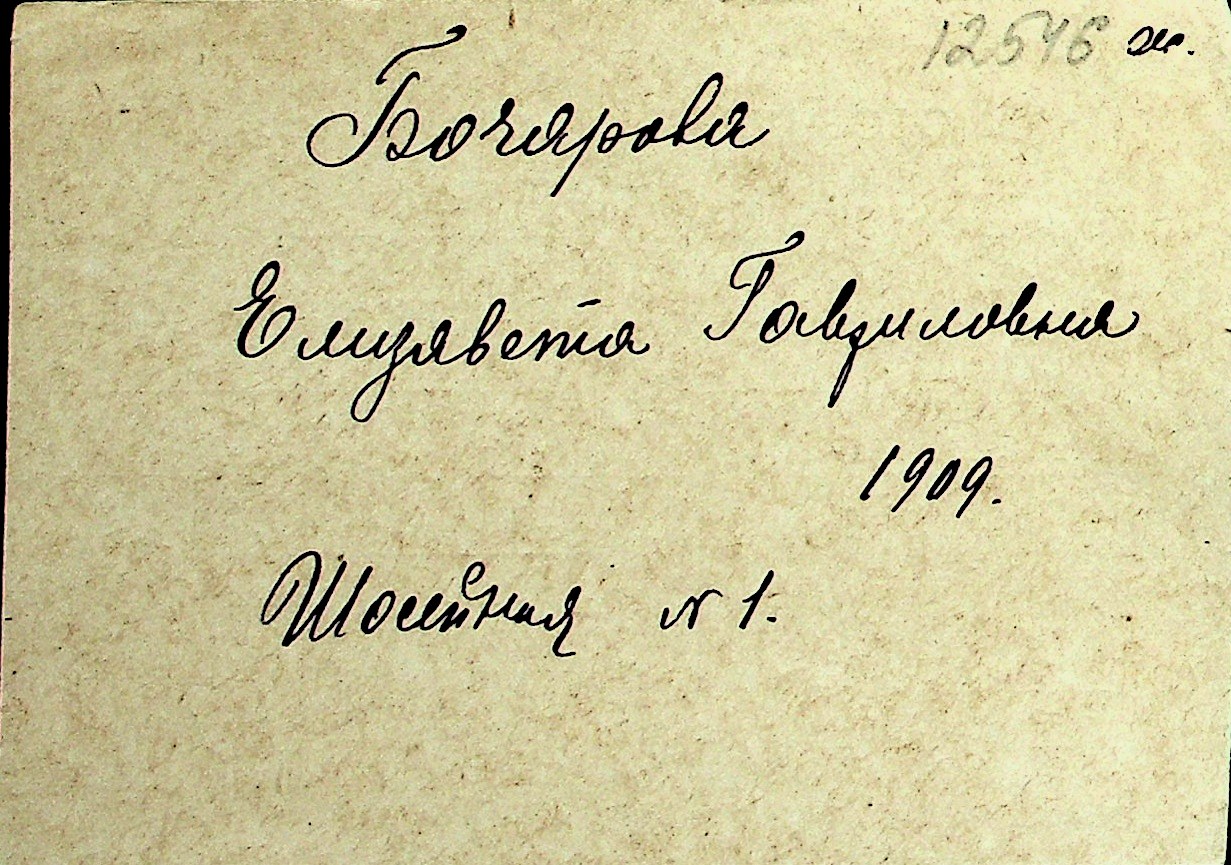 12546 ж.
Бочарова
Елизавета Гавриловна
1909.
Шоссейная N 1.